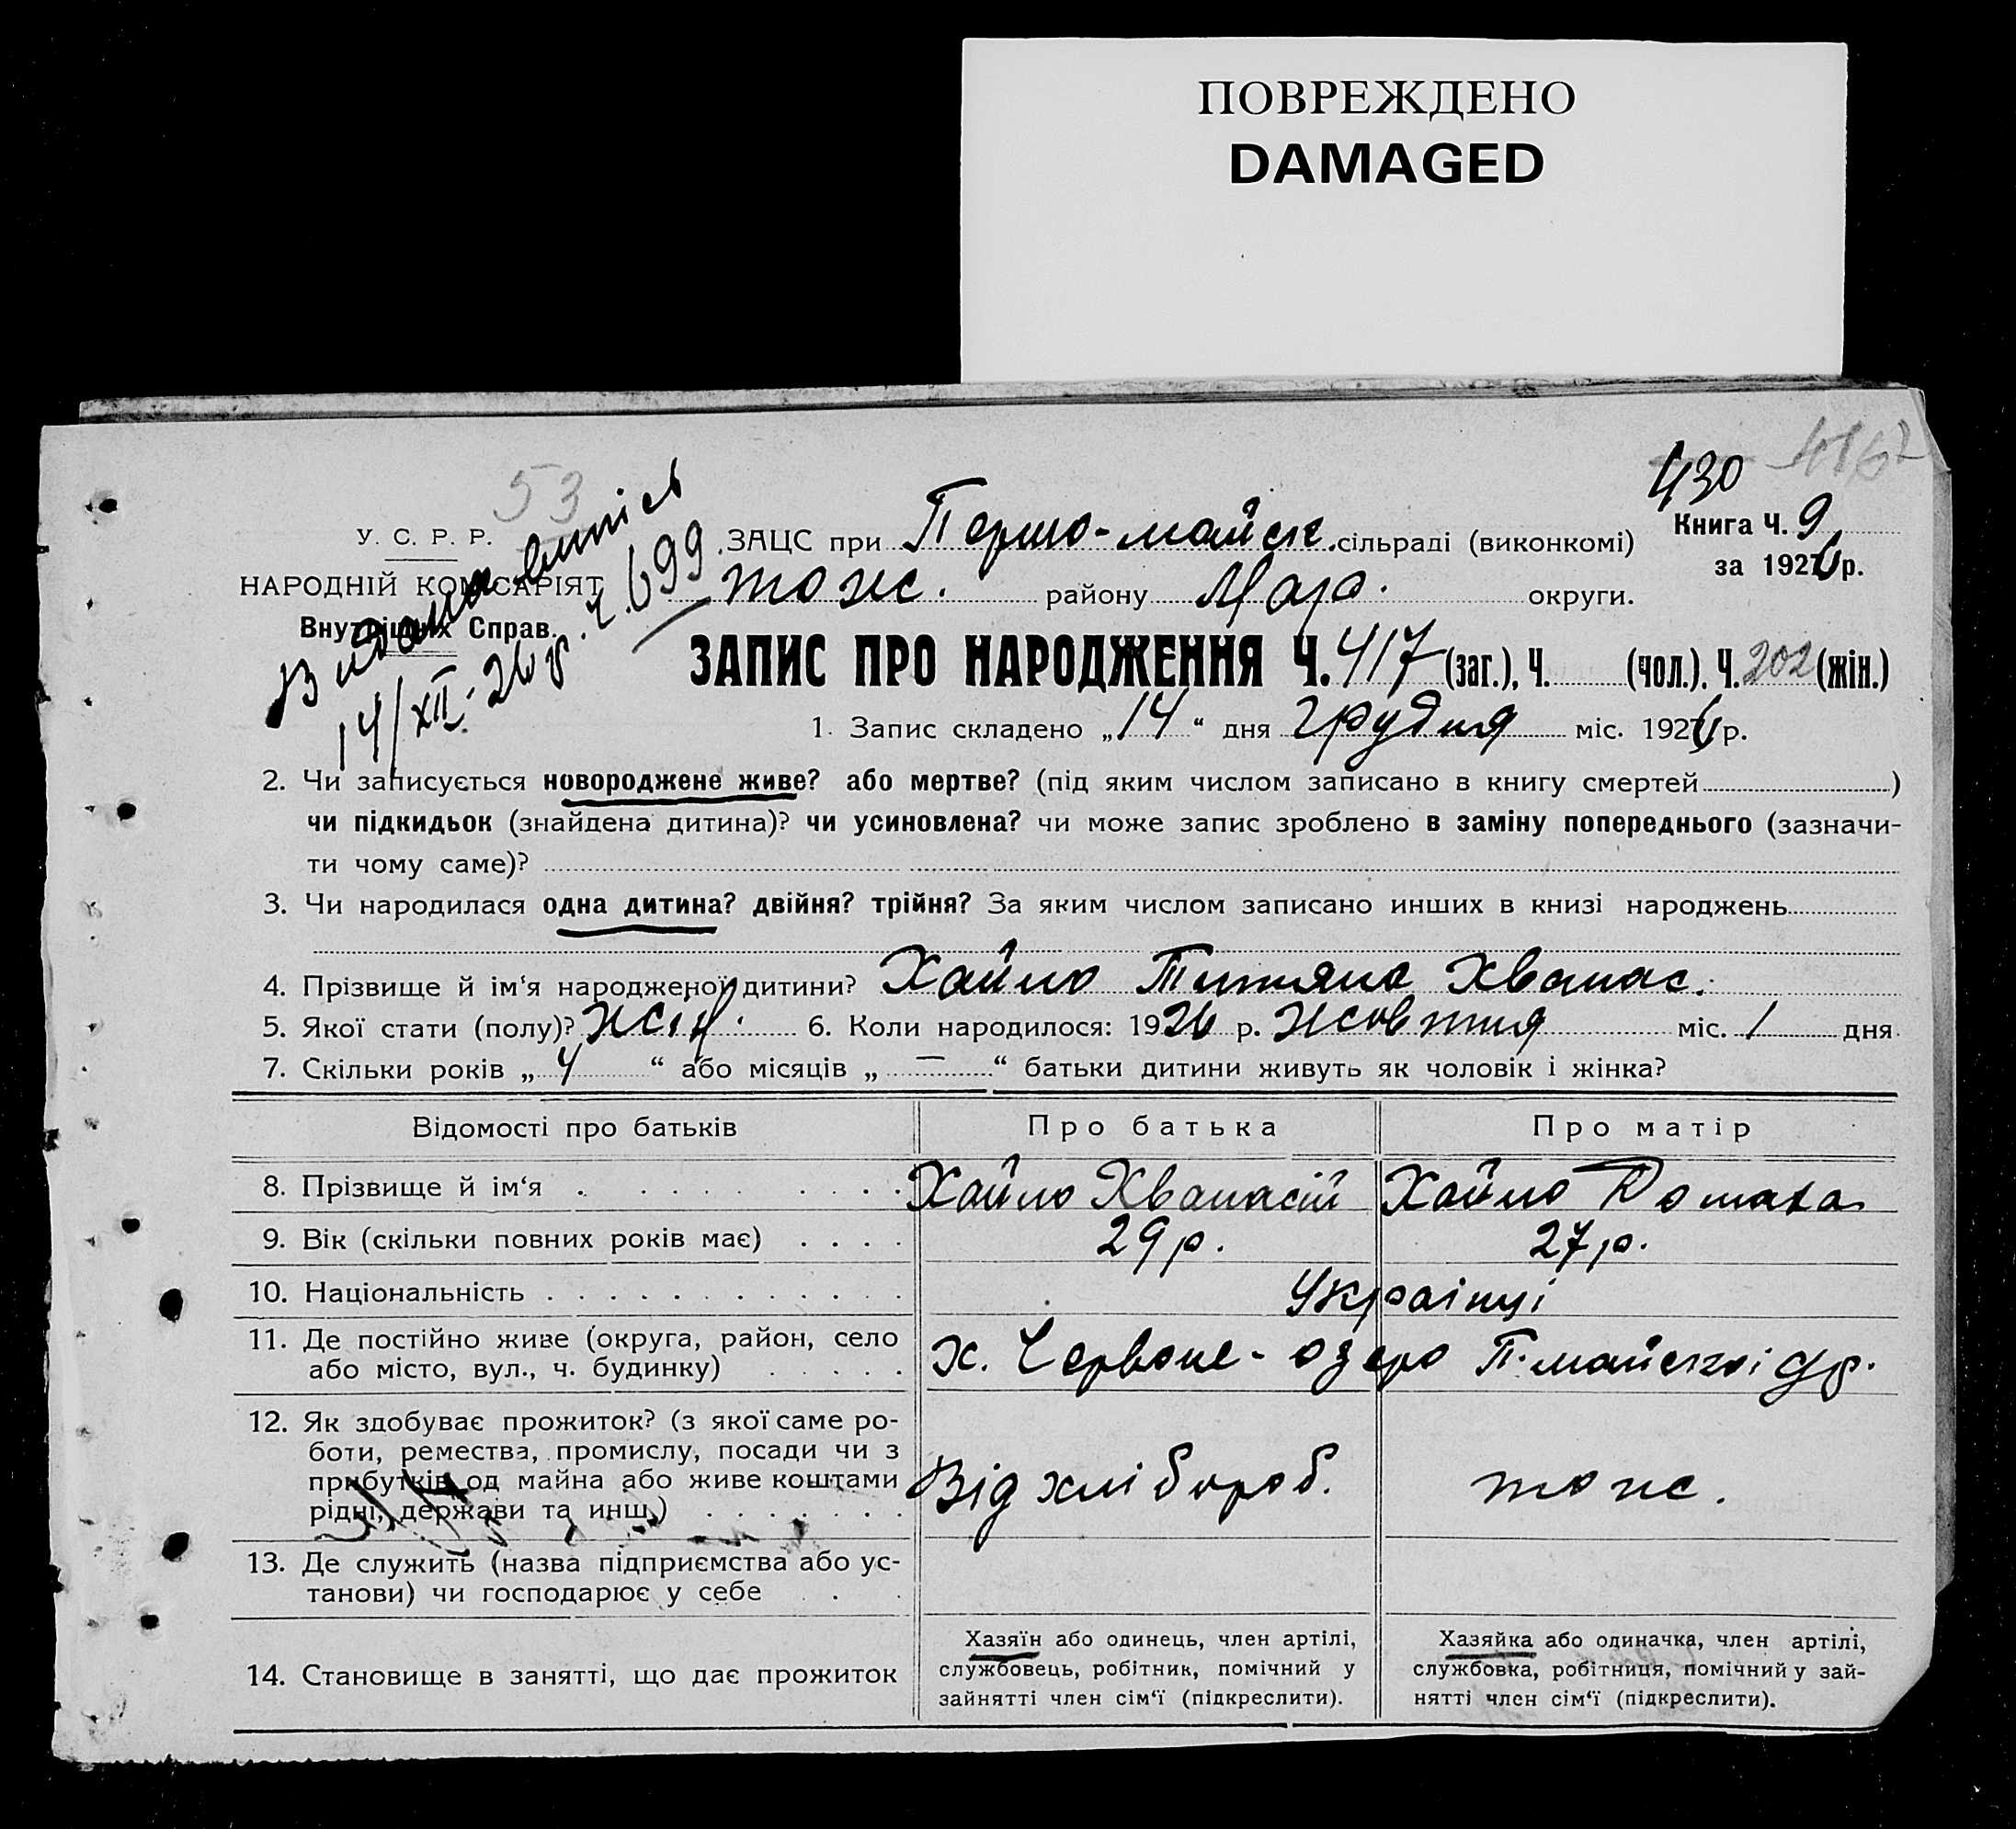 ПОВРЕЖДЕНО
DAMAGED
430
53
У. С. Р. Р.
НАРОДНІЙ КОМІСАРІЯТ
Внутрішніх Справ.
Видана випись
14/XII-26 р. ч. 699
ЗАЦС при Першо-майськ. сільраді (виконкомі)
Книга Ч. 9
за 1926 р.
тож. району округи.
ЗАПИС ПРО НАРОДЖЕННЯ Ч. 417 (заг.), Ч. (чол.). Ч. 202 (жін.)
1. Запис складено „14“ дня грудня міс. 1926 р.
2. Чи записується новороджене живе? або мертве? (під яким числом записано в книгу смертей )
чи підкидьок (знайдена дитина)? чи усиновлена? чи може запис зроблено в заміну попереднього (зазначи-
ти чому саме)?
3. Чи народилася одна дитина? двійня? трійня? За яким числом записано инших в книзі народжень
4. Прізвище й ім‘я народженої дитини? Хайло Титяна Хванас.
5. Якої стати (полу)? жін. 6. Коли народилося: 1926 р. жовтня міс. 1 дня
7. Скільки років „4“ або місяців „—“ батьки дитини живуть як чоловік і жінка?
Відомості про батьків Про батька Про матір
8. Прізвище й ім‘я Хайло Хванасій Хайло Домаха
9. Вік (скільки повних років має) 29 р. 27 р.
10. Національність Українці
11. Де постійно живе (округа, район, село
або місто, вул., ч. будинку)
х. Червоне-озеро П-майської
12. Як здобуває прожиток? (з якої саме ро-
боти, ремества, промислу, посади чи з
прибутків од майна або живе коштами
рідні, держави та инш.)
Від хлібороб. тож.
13. Де служить (назва підприємства або ус-
танови) чи господарює у себе
14. Становище в занятті, що дає прожиток
Хазяїн або одинець, член артілі,
службовець, робітник, помічний у
зайнятті член сім‘ї (підкреслити).
Хазяйка або одиначка, член артілі,
службовка, робітниця, помічний у зай-
нятті член сім‘ї (підкреслити).